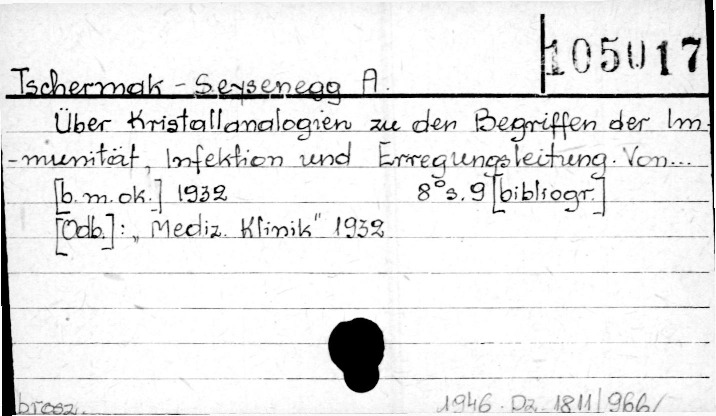 105017
Tschermak-Seysenegg A.
Über Kristallanalogien zu den Begriffen der Im-
-munität, Infektion und Erregungsleitung. Von...
[b.m.ok.] 1932 8° s. 9 [bibliogr.]
[Odb.]: „Mediz. Klinik" 1932
brosz. 1946. Dz. 1811/966/